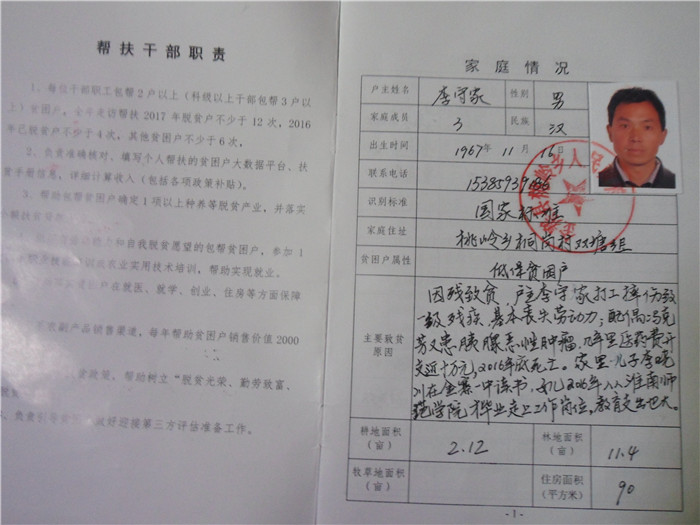 帮扶干部职责
1、每位干部职工包帮2户以上（科级以上干部包帮3户以
上）贫困户，全年走访帮扶2017年脱贫户不少于12次，2016
年已脱贫户不少于4次，其他贫困户不少于6次。
2、负责准确核对、填写个人帮扶的贫困户大数据平台、扶
贫手册信息，详细计算收入（包括各项政策补贴）。
3、帮助包帮贫困户确定1项以上种养等脱贫产业，并落实
和自我脱贫愿望的包帮贫困户，参加1
农业实用技术培训，帮助实现就业。
在就医、就学、创业、住房等方面保障
农副产品销售渠道，每年帮助贫困户销售价值2000
贫政策，帮助树立“脱贫光荣、勤劳致富、
做好迎接第三方评估准备工作。
家庭情况
户主姓名 李守家 性别 男
家庭成员 3 民族 汉
出生时间 1967年11月16日
联系电话 1538593
识别标准 国家标准
家庭住址 桃岭乡桐岗村双塘组
贫困户属性 低保贫困户
主要致贫
原因
因残致贫，户主李守家打工摔伤致
一级残疾，基本丧失劳动力；配偶冯克
芳又患胰腺恶性肿瘤，几年里医药费开
支近十万元，2016年底死亡。家里一儿子李晓
川在金寨一中读书，女儿2016年从淮南师
范学院毕业走上工作岗位，教育支出巨大。
耕地面积
（亩）
2.12
林地面积
（亩）
11.4
牧草地面积
（亩）
住房面积
（平方米）
90
- 1 -